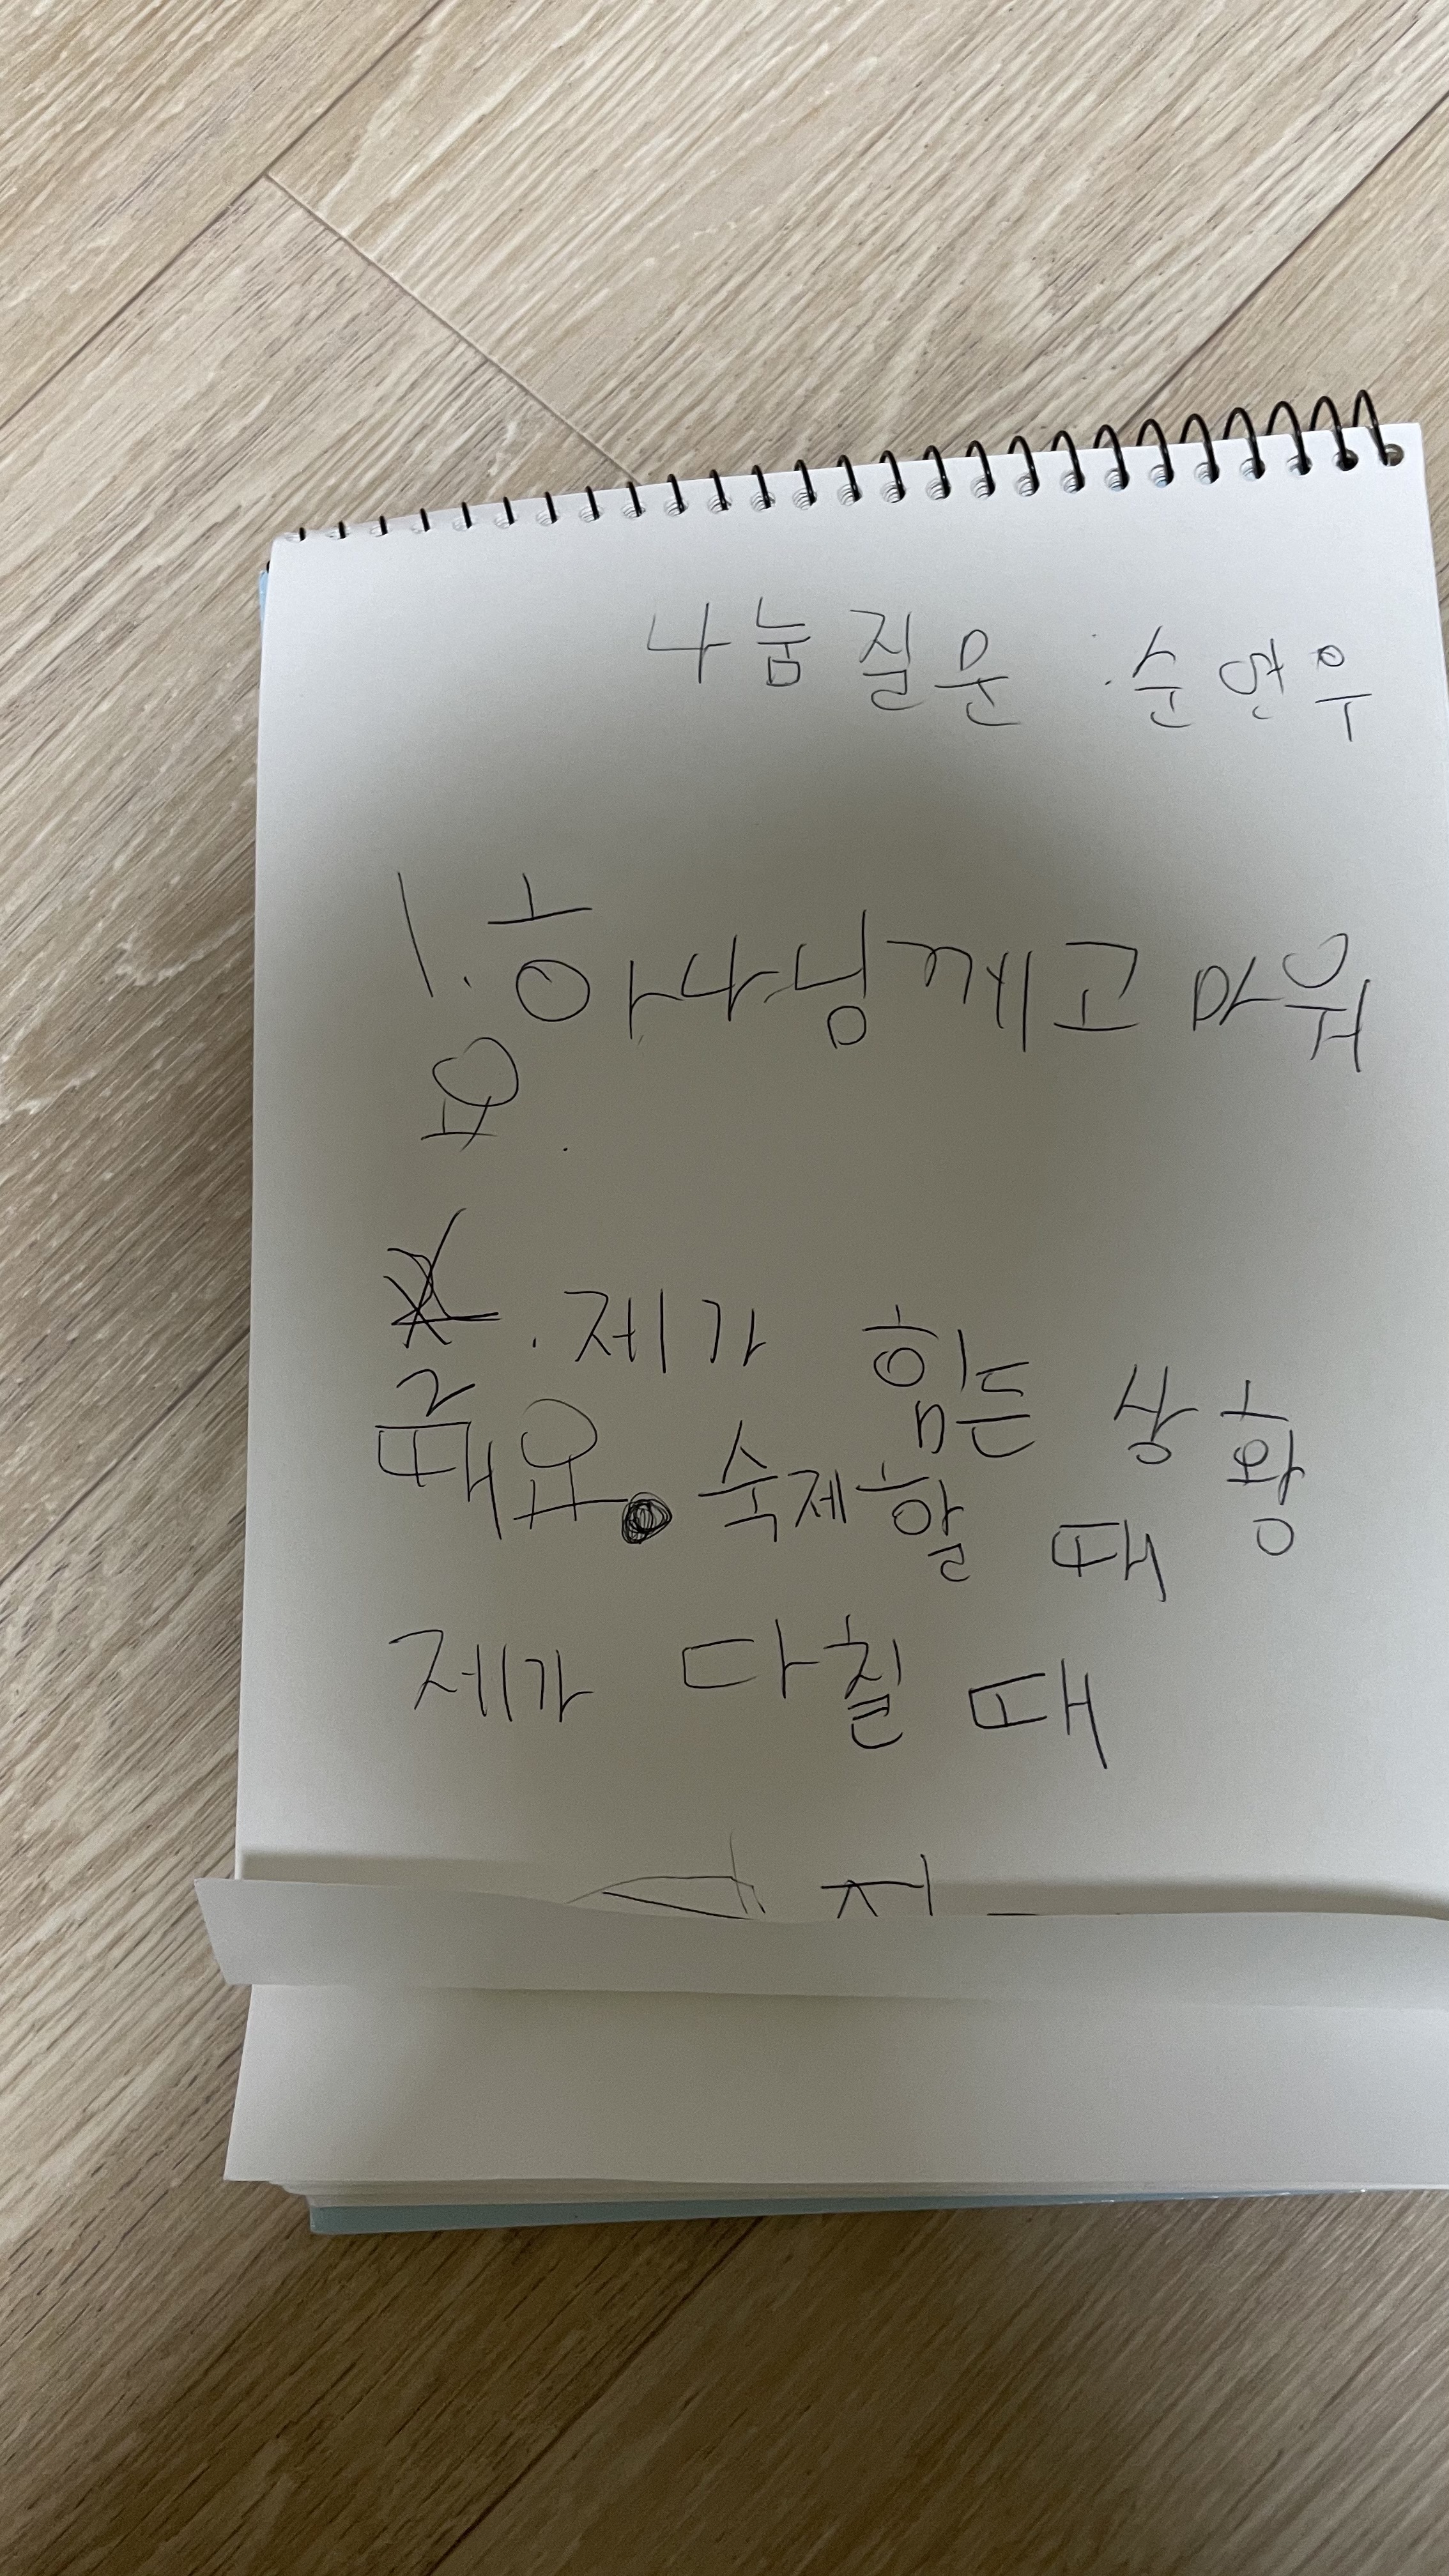 나눔 질문 순연우
1. 하나님께 고마워
요.
2. 제가 힘든 상황
때요. 숙제할 때
제가 다칠 때